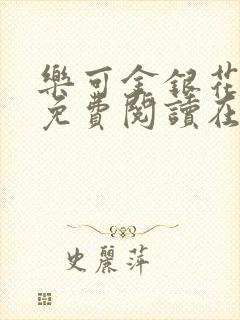 樂可金銀花
免費閱讀在
史麗萍